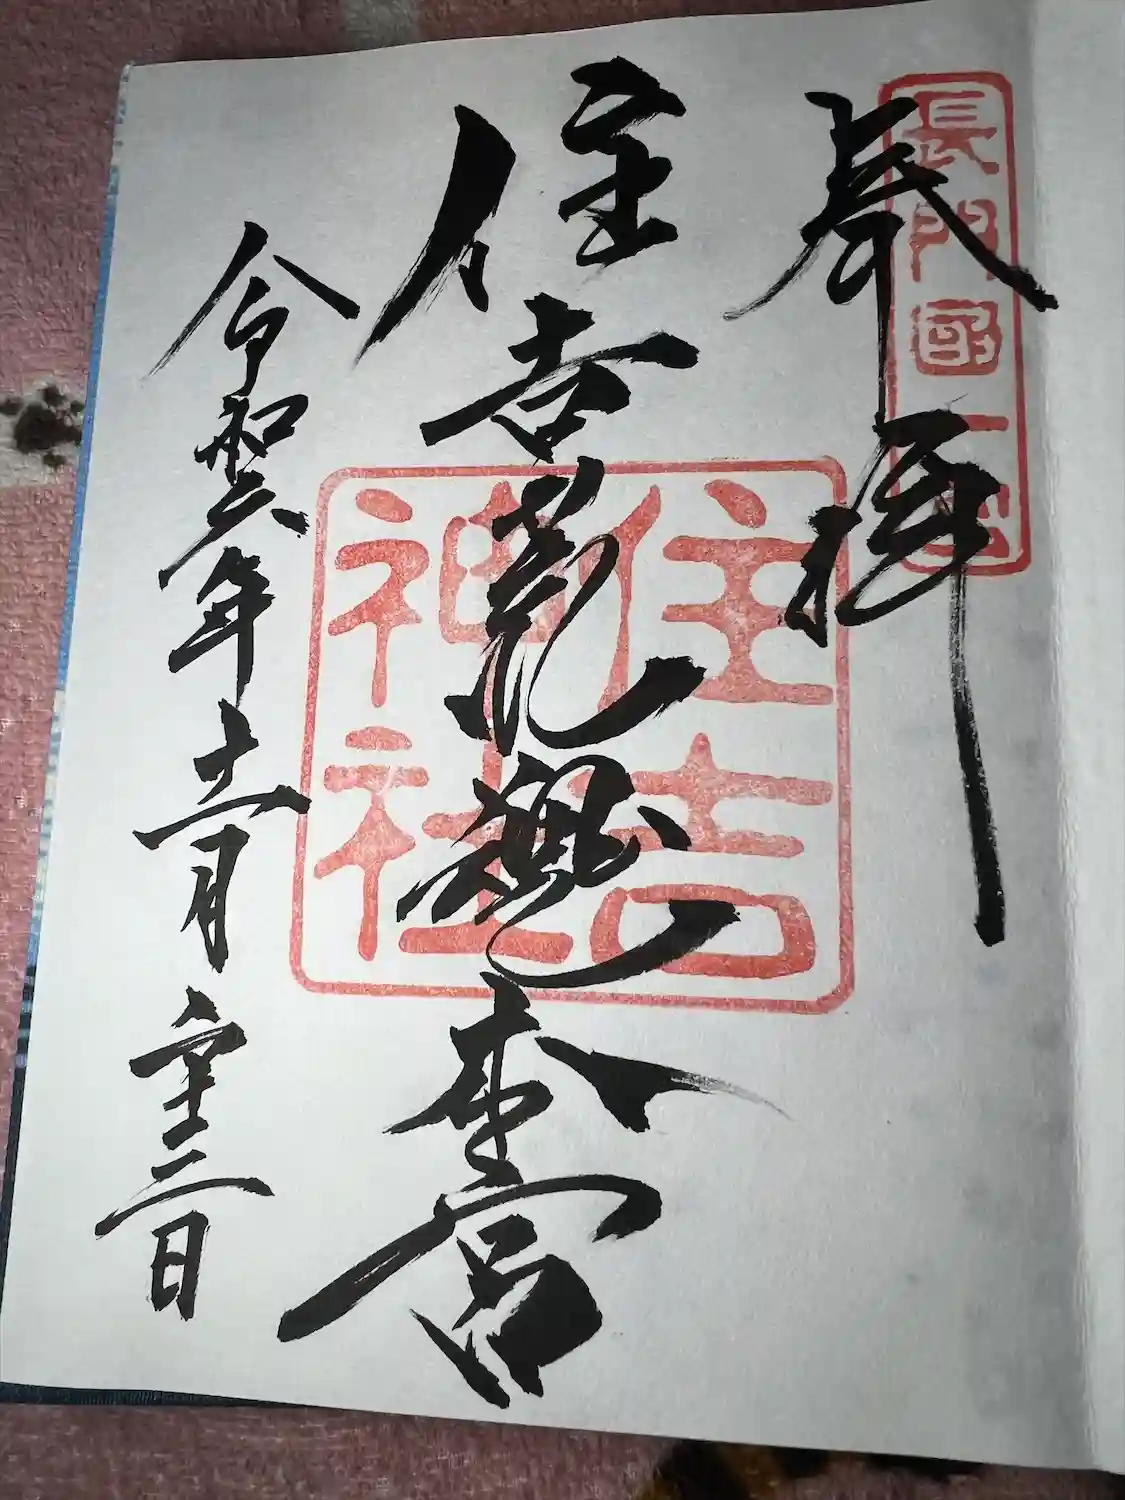 奉拝
長門国一宮
住吉荒魂本宮
住吉神社
令和六年十一月二十三日